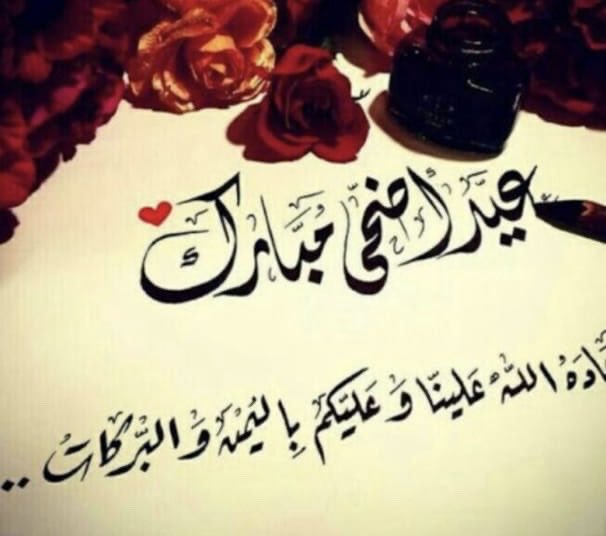 عيد أضحى مبارك
اده الله علينا و عليكم باليمن و البركات ..